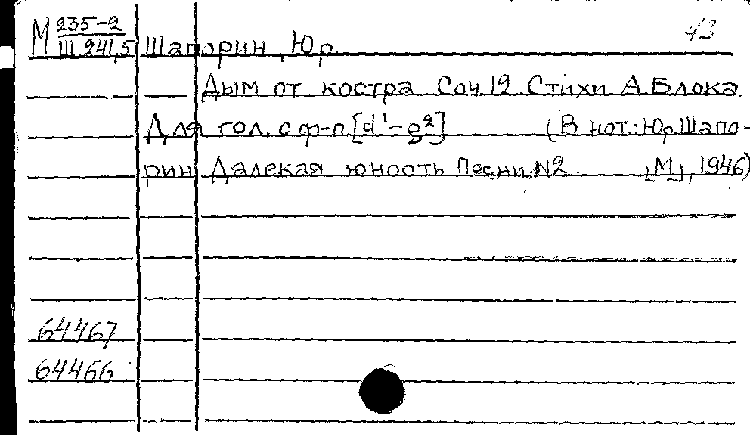 43
М 235-2
Ш 241,5 Шапорин, Юр.
Дым от костра Соч 12 Стихи А.Блока
Для гол. с ф-п. [d¹-g²] (В нот.: Юр.Шапо-
рин Далекая юность Песни №2 [М], 1946)
64467
64466